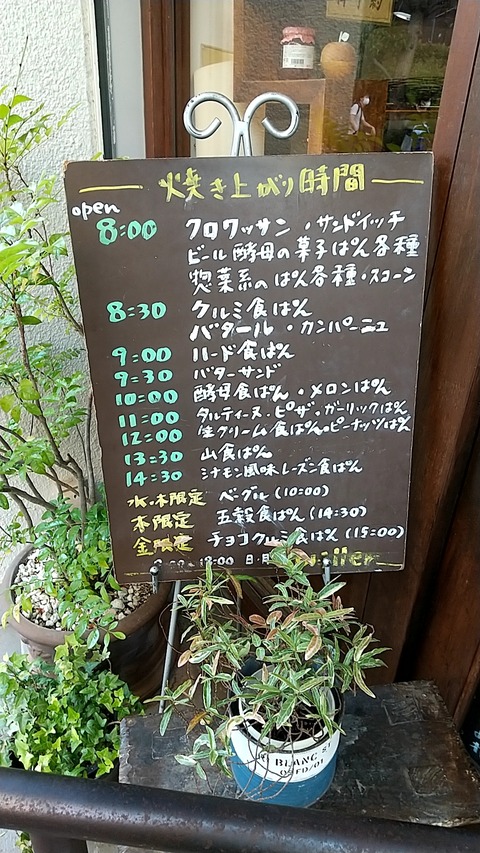 焼き上がり時間
open
8:00 クロワッサン・サンドイッチ
ビール酵母の菓子ぱん各種
惣菜系のぱん各種・スコーン
8:30 クルミ食ぱん
バタール・カンパーニュ
9:00 ハード食ぱん
9:30 バターサンド
10:00 酵母食ぱん・メロンぱん
11:00 タルティーヌ・ピザ・ガーリックぱん
12:00 生クリーム食ぱん・ピーナッツぱん
13:30 山食ぱん
14:30 シナモン風味レーズン食ぱん
水・木限定 ベーグル(10:00)
木限定 五穀食ぱん(14:30)
金限定 チョコクルミ食ぱん(15:00)
18:00 日・月
BLANC